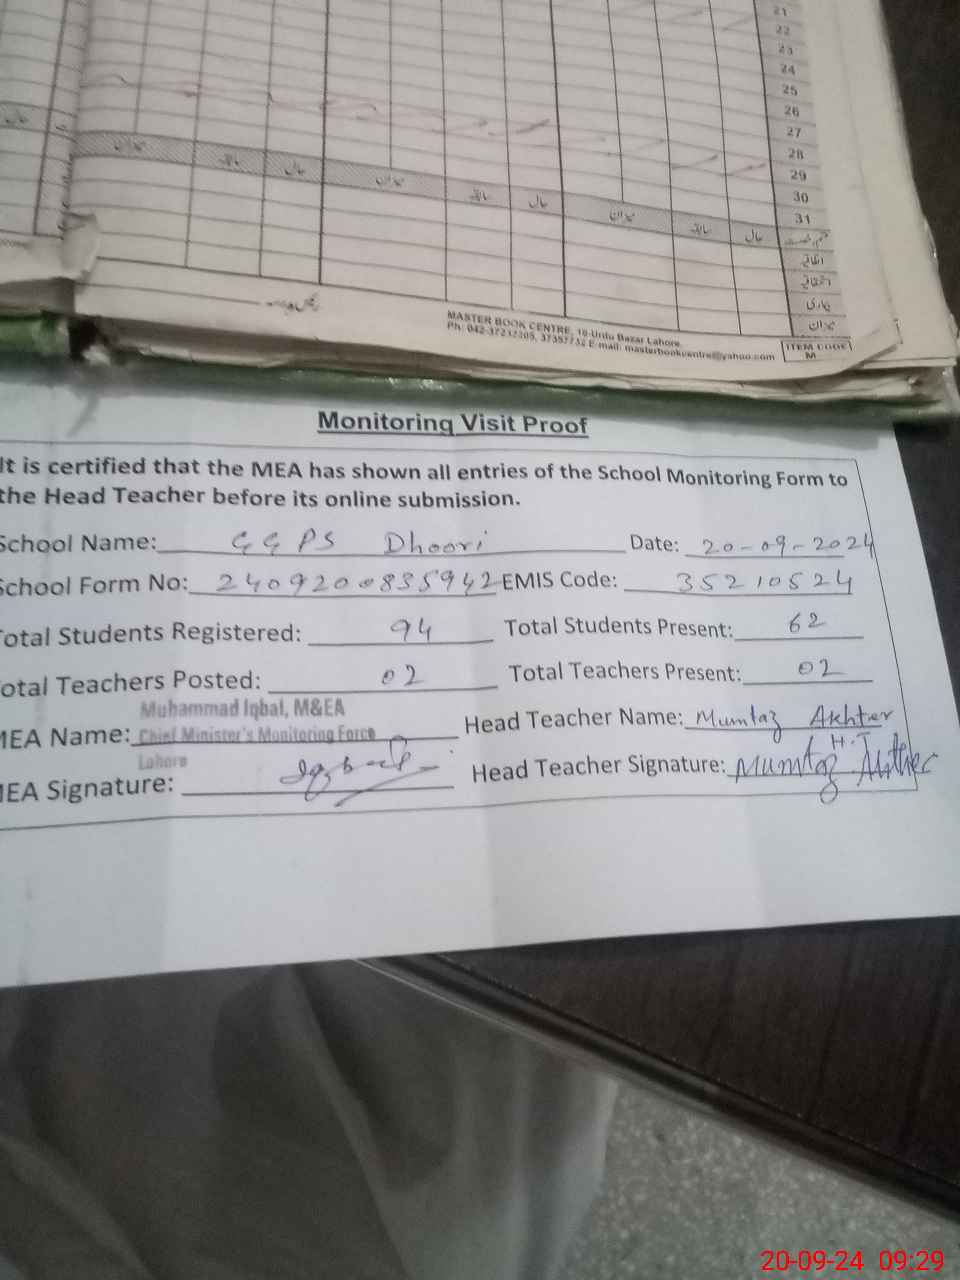 21
22
23
24
25
26
27
28
29
30
31
میزان سابقہ حال میزان سابقہ حال میزان سابقہ حال
اتفاقیہ
استحقاقیہ
بیماری
میزان
MASTER BOOK CENTRE, 10-Urdu Bazar Lahore.
Ph: 042-37232205, 37357732 E-mail: masterbookcentre@yahoo.com
ITEM CODE
M
Monitoring Visit Proof
It is certified that the MEA has shown all entries of the School Monitoring Form to
the Head Teacher before its online submission.
School Name: GGPS Dhoori Date: 20-09-2024
School Form No: 2409200835942 EMIS Code: 35210524
Total Students Registered: 94 Total Students Present: 62
Total Teachers Posted: 02 Total Teachers Present: 02
Muhammad Iqbal, M&EA
MEA Name: Chief Minister's Monitoring Force Head Teacher Name: Mumtaz Akhter
Lahore
H.T
MEA Signature: Iqbal Head Teacher Signature: Mumtaz Akhter
20-09-24 09:29